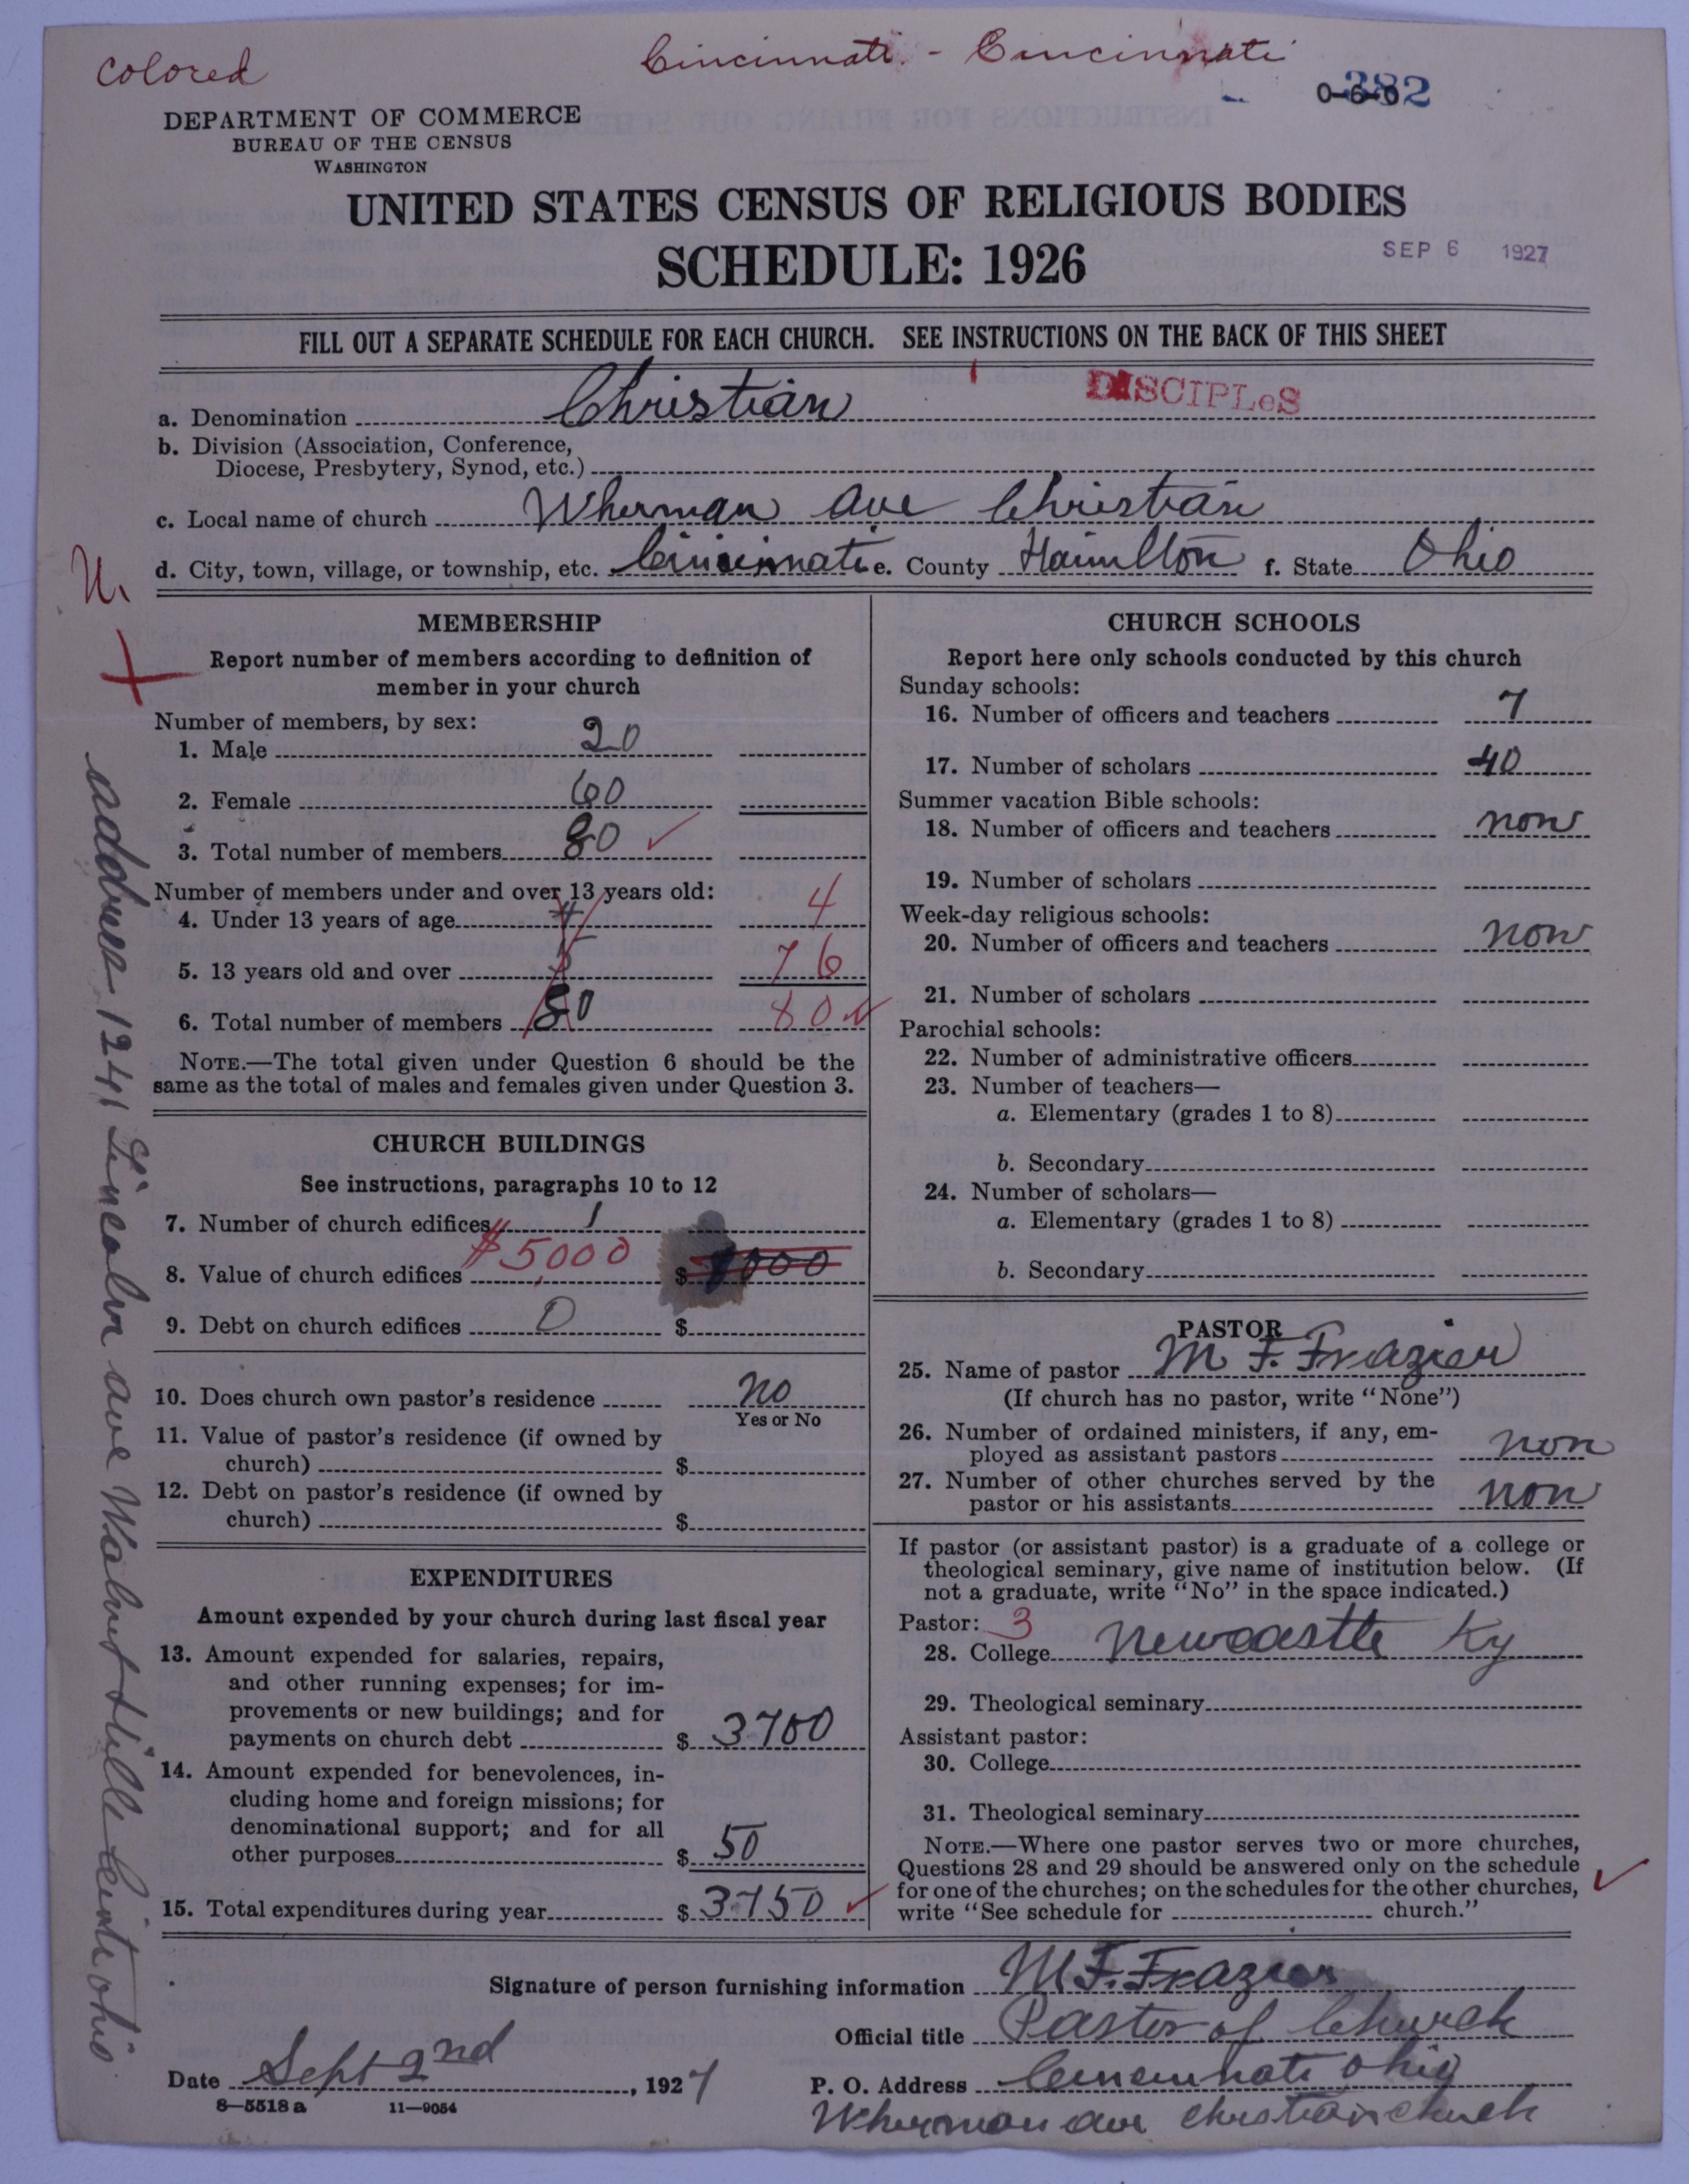 colored
Cincinnati - Cincinnati
382
0-6-0
DEPARTMENT OF COMMERCE
BUREAU OF THE CENSUS
WASHINGTON
UNITED STATES CENSUS OF RELIGIOUS BODIES
SCHEDULE: 1926
SEP 6 1927
FILL OUT A SEPARATE SCHEDULE FOR EACH CHURCH. SEE INSTRUCTIONS ON THE BACK OF THIS SHEET
a. Denomination Christian DISCIPLeS
b. Division (Association, Conference,
Diocese, Presbytery, Synod, etc.)
c. Local name of church Wherman ave Christian
d. City, town, village, or township, etc. Cincinnati e. County Hamilton f. State Ohio
N.
address 1241 Lincoln ave Walnut Hills Cinti ohio
MEMBERSHIP
Report number of members according to definition of
member in your church
Number of members, by sex:
1. Male 20
2. Female 60
3. Total number of members 80
Number of members under and over 13 years old:
4. Under 13 years of age 4 4
5. 13 years old and over 76
6. Total number of members 80 80
NOTE.—The total given under Question 6 should be the
same as the total of males and females given under Question 3.
CHURCH BUILDINGS
See instructions, paragraphs 10 to 12
7. Number of church edifices 1
8. Value of church edifices $5,000 $
9. Debt on church edifices 0 $
10. Does church own pastor's residence no
Yes or No
11. Value of pastor's residence (if owned by
church) $
12. Debt on pastor's residence (if owned by
church) $
EXPENDITURES
Amount expended by your church during last fiscal year
13. Amount expended for salaries, repairs,
and other running expenses; for im-
provements or new buildings; and for
payments on church debt $ 3700
14. Amount expended for benevolences, in-
cluding home and foreign missions; for
denominational support; and for all
other purposes $ 50
15. Total expenditures during year $ 3750
CHURCH SCHOOLS
Report here only schools conducted by this church
Sunday schools:
16. Number of officers and teachers 7
17. Number of scholars 40
Summer vacation Bible schools:
18. Number of officers and teachers non
19. Number of scholars
Week-day religious schools:
20. Number of officers and teachers non
21. Number of scholars
Parochial schools:
22. Number of administrative officers
23. Number of teachers—
a. Elementary (grades 1 to 8)
b. Secondary
24. Number of scholars—
a. Elementary (grades 1 to 8)
b. Secondary
PASTOR
25. Name of pastor M F. Frazier
(If church has no pastor, write "None")
26. Number of ordained ministers, if any, em-
ployed as assistant pastors non
27. Number of other churches served by the
pastor or his assistants non
If pastor (or assistant pastor) is a graduate of a college or
theological seminary, give name of institution below. (If
not a graduate, write "No" in the space indicated.)
Pastor: 3
28. College Newcastle Ky
29. Theological seminary
Assistant pastor:
30. College
31. Theological seminary
NOTE.—Where one pastor serves two or more churches,
Questions 28 and 29 should be answered only on the schedule
for one of the churches; on the schedules for the other churches,
write "See schedule for church."
Signature of person furnishing information M F. Frazier
Official title Pastor of Church
Date Sept 2nd, 1927
P. O. Address Cincinnati Ohio
Wherman ave Christian church
8—5518 a 11—9054